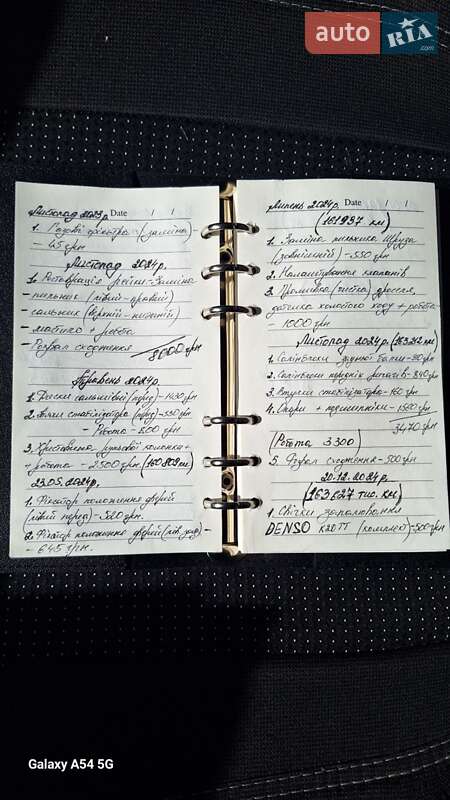 auto
RIA
.com
Листопад 2023р. Date / /
1. Газові фільтра (заміна)
- 45 грн
Листопад 2024р.
1. Реставрація рейки-Заміна
- пильник (лівий-правий)
- сальник (верхній-нижній)
- мастило + робота
- Розвал сходження
8000 грн
Травень 2024р.
1. Диски гальмівні (перед)-1430 грн
2. Втулки стабілізатора (перед)-330 грн
- Робота - 500 грн
3. Хрестовина рульової колонки +
+ робота - 2500 грн. (160 809 км)
23.05.2024р.
1. Фіксатор положення дверей
(лівий перед) - 520 грн.
2. Фіксатор положення дверей (лів. зад) -
- 645 грн.
Липень 2024р. Date / /
(161 937 км)
1. Заміна пильника Шруза
(зовнішній) - 550 грн
2. Налаштування клапанів
3. Промивка (чистка) дроселя,
датчика холостого ходу + робота -
- 1000 грн
Листопад 2024р. (163 242 км)
1. Сайлінблоки задньої балки
2. Сайлінблоки передніх - 840 грн
3. Втулки стабілізатора - 160 грн
4. Опори + підшипники - 1500 грн
3470 грн
Робота 3300
5. Розвал сходження - 500 грн
20.12.2024р.
(163 627 тис. км)
1. Свічки запалювання
DENSO K20TT (комплект) - 500 грн
Galaxy A54 5G